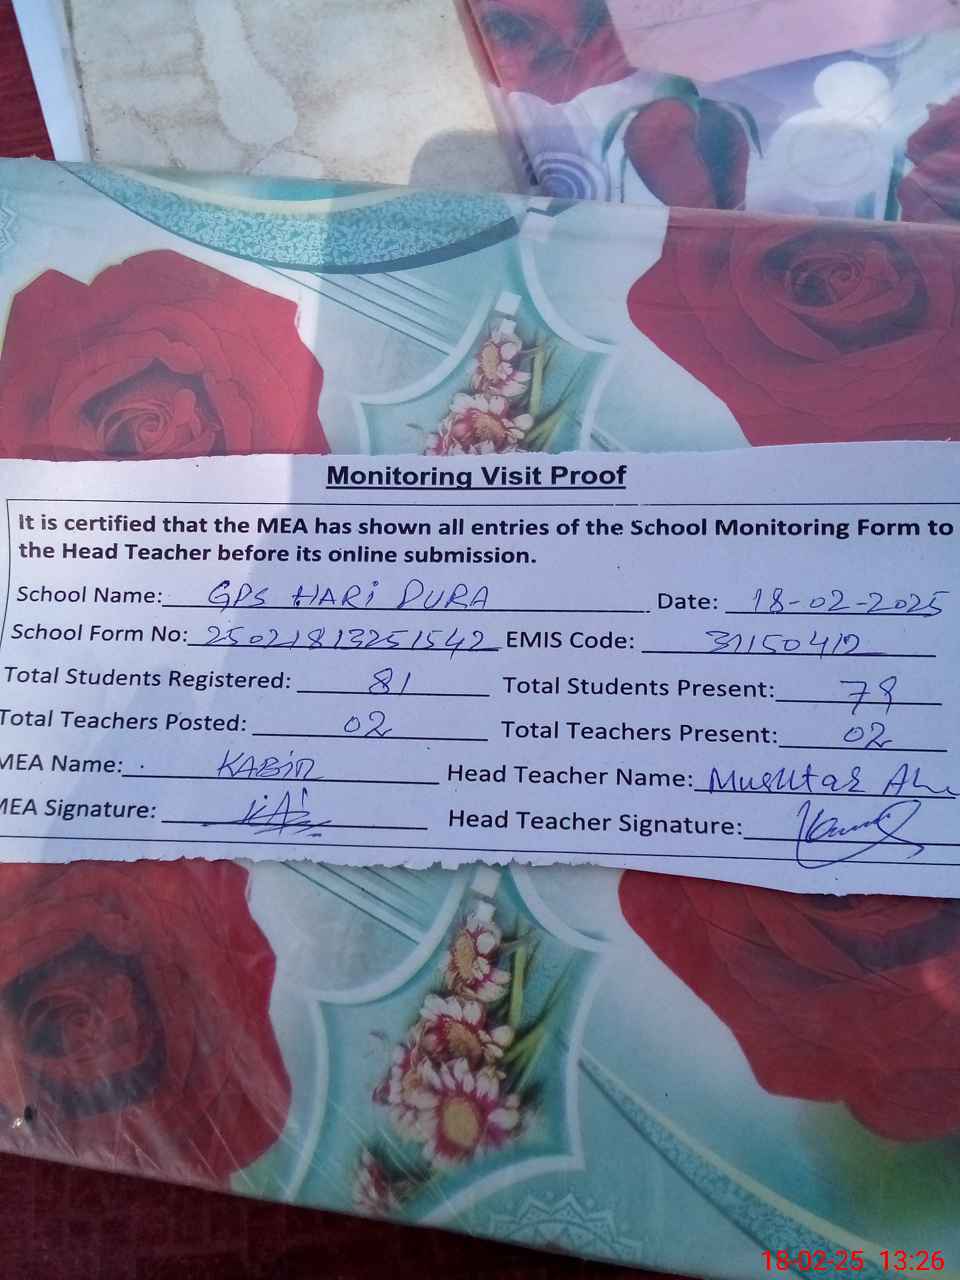 Monitoring Visit Proof
It is certified that the MEA has shown all entries of the School Monitoring Form to
the Head Teacher before its online submission.
School Name: GPS HARI PURA Date: 18-02-2025
School Form No: 25021813251542 EMIS Code: 31150412
Total Students Registered: 81 Total Students Present:
Total Teachers Posted: 02 Total Teachers Present: 02
MEA Name: KABIR Head Teacher Name: Mushtaq Ah
MEA Signature: Head Teacher Signature:
18-02-25 13:26